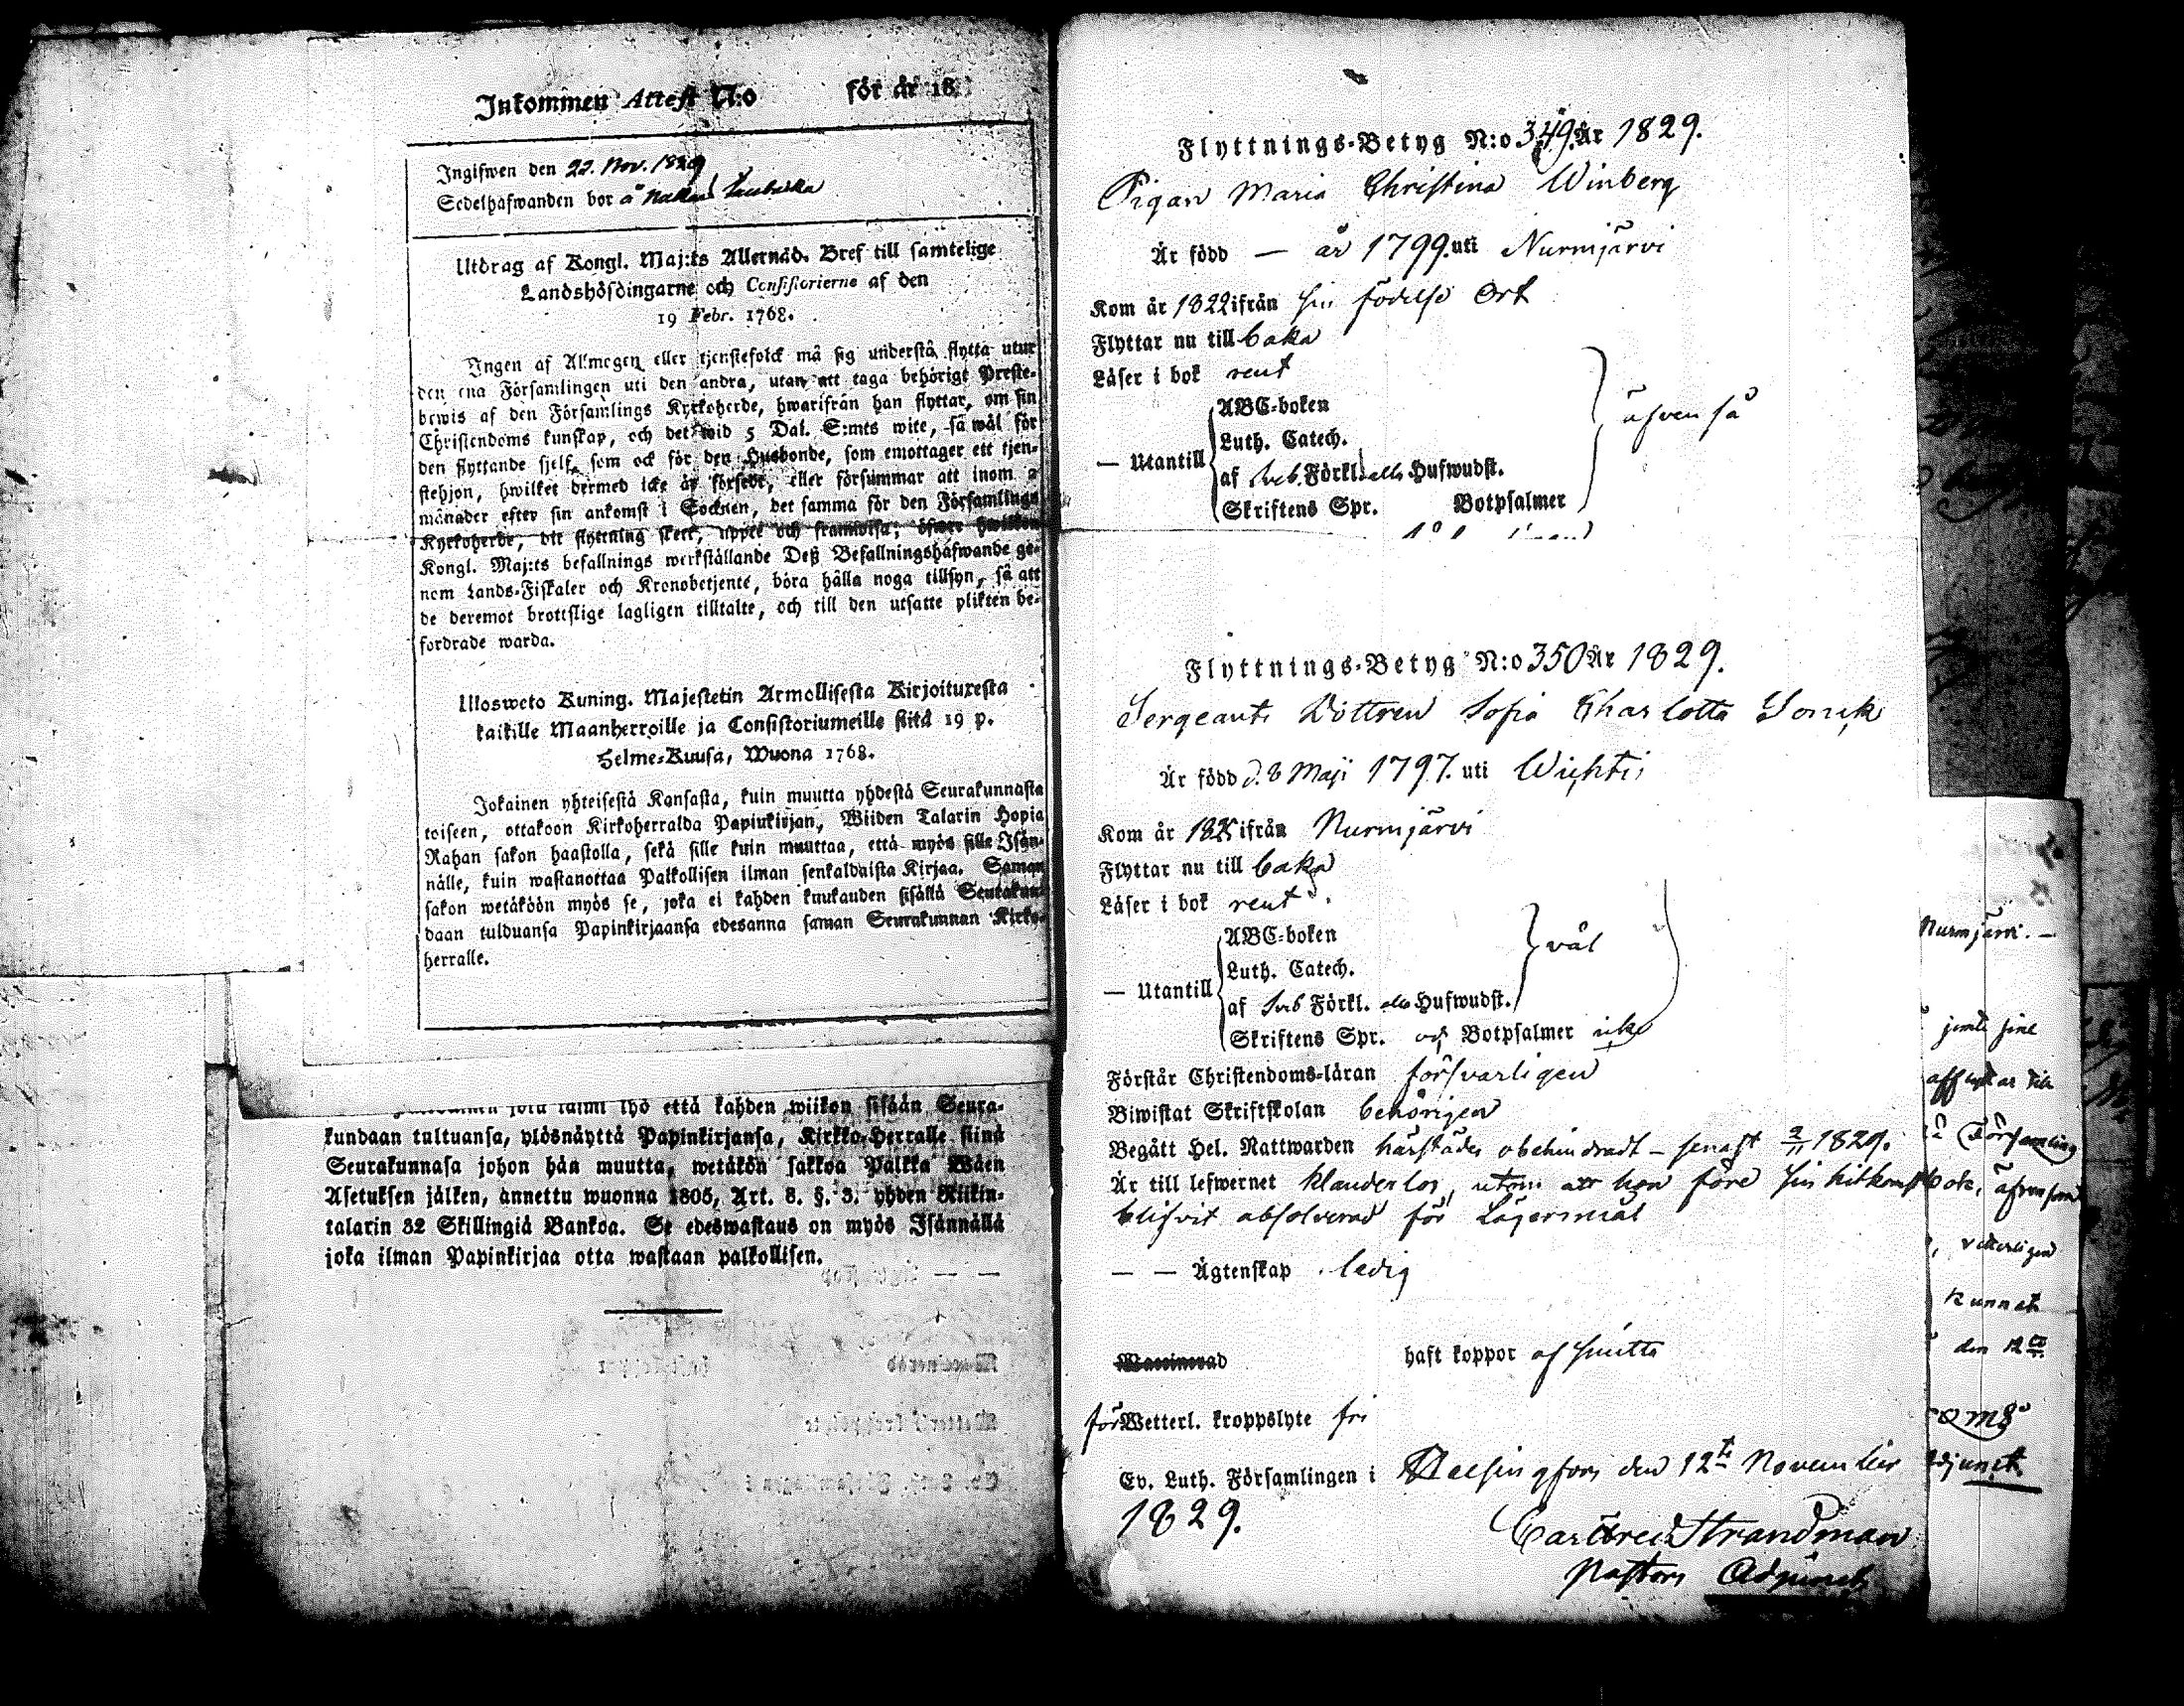 Inkommen Attest N:o för år 18
Ingifwen den 22. Nov. 1829
Sedelhafwanden bor å
Utdrag af Kongl. Maj:ts Allernåd. Bref till samtelige
Landshöfdingarne och Consistorierne af den
19 Febr. 1768.
Ingen af Allmogen eller tjenstefolck må sig understå flytta utur
den ena Församlingen uti den andra, utan att taga behörigt Preste-
bewis af den Församlings Kyrkoherde, hwarifrån han flyttar, om sin
Christendoms kunskap, och det wid 5 Dal. S:mts wite, så wäl för
den flyttande sjelf, som ock för den Husbonde, som emottager ett tjen-
stehjon, hwilket dermed icke är försedt, eller försummar att inom 2
månader efter sin ankomst i Socknen, det samma för den Församlings
Kyrkoherde, dit flyttning skett, uppte och framwisa; öfwer hwilken
Kongl. Maj:ts befallnings werkställande Deß Befallningshafwande ge-
nom Lands-Fiskaler och Kronobetjente, böra hålla noga tillsyn, så att
de deremot brottslige lagligen tilltalte, och till den utsatte plikten be-
fordrade warda.
Ulosweto Kuning. Majestetin Armollisesta Kirjoituxesta
kaikille Maanherroille ja Consistoriumeille siitä 19 p.
Helme-Kuusa, Wuona 1768.
Jokainen yhteisestä Kansasta, kuin muutta yhdestä Seurakunnasta
toiseen, ottakoon Kirkoherralda Papinkirjan, Wiiden Talarin Hopia
Rahan sakon haastolla, sekä sille kuin muuttaa, että myös sille Isän-
nälle, kuin wastanottaa Palkollisen ilman senkaldaista Kirjaa. Saman
sakon wetäköön myös se, joka ei kahden kuukauden sisällä Seurakun-
daan tulduansa Papinkirjaansa edesanna saman Seurakunnan Kirko-
herralle.
että kahden wiikon sisään Seura-
kundaan tultuansa, ylösnäyttä Papinkirjansa, Kirkko-Herralle siinä
Seurakunnasa johon hän muutta, wetäkön sakkoa Palkka Wäen
Asetuksen jälken, annettu wuonna 1805, Art. 8. §. 3. yhden Riikin-
talarin 32 Skillingiä Bankoa. Se edeswastaus on myös Isännällä
joka ilman Papinkirjaa otta wastaan palkollisen.
Flyttnings-Betyg N:o 349. År 1829.
Pigan Maria Christina Winberg
Är född — år 1799. uti Nurmijärvi
Kom år 1822 ifrån sin födelse Ort
Flyttar nu till baka
Läser i bok rent
ABC-boken
Luth. Catech. äfven så
— Utantill
af Sveb. Förkl. alla Hufwudst.
Skriftens Spr. Botpsalmer
Flyttnings-Betyg N:o 350 År 1829.
Sergeants Dottren Sofia Charlotta
Är född d. 8 Maji 1797. uti Wichtis
Kom år ifrån Nurmijärvi
Flyttar nu till baka
Läser i bok rent
ABC-boken väl
Luth. Catech.
— Utantill
af Sveb Förkl. alla Hufwudst.
Skriftens Spr. och Botpsalmer icke
Förstår Christendoms-läran försvarligen
Biwistat Skriftskolan behörigen
Begått Hel. Nattwarden härstädes obehindradt – senast 2/11 1829.
Är till lefwernet klanderlos, utom att hon före sin hitkomst
blifvit absolverad för Lägersmål
— — Ägtenskap ledig
Waccinerad haft koppor af smitta
för Wetterl. kroppslyte fri
Ev. Luth. Församlingen i Helsingfors den 12te November
1829.
Carl Strandman
Pastors Adjunct
Nurmjärvi. —
jemte sine
afflyttar till
Församling
bok, äfven som
kunnat
den 12
djunct.